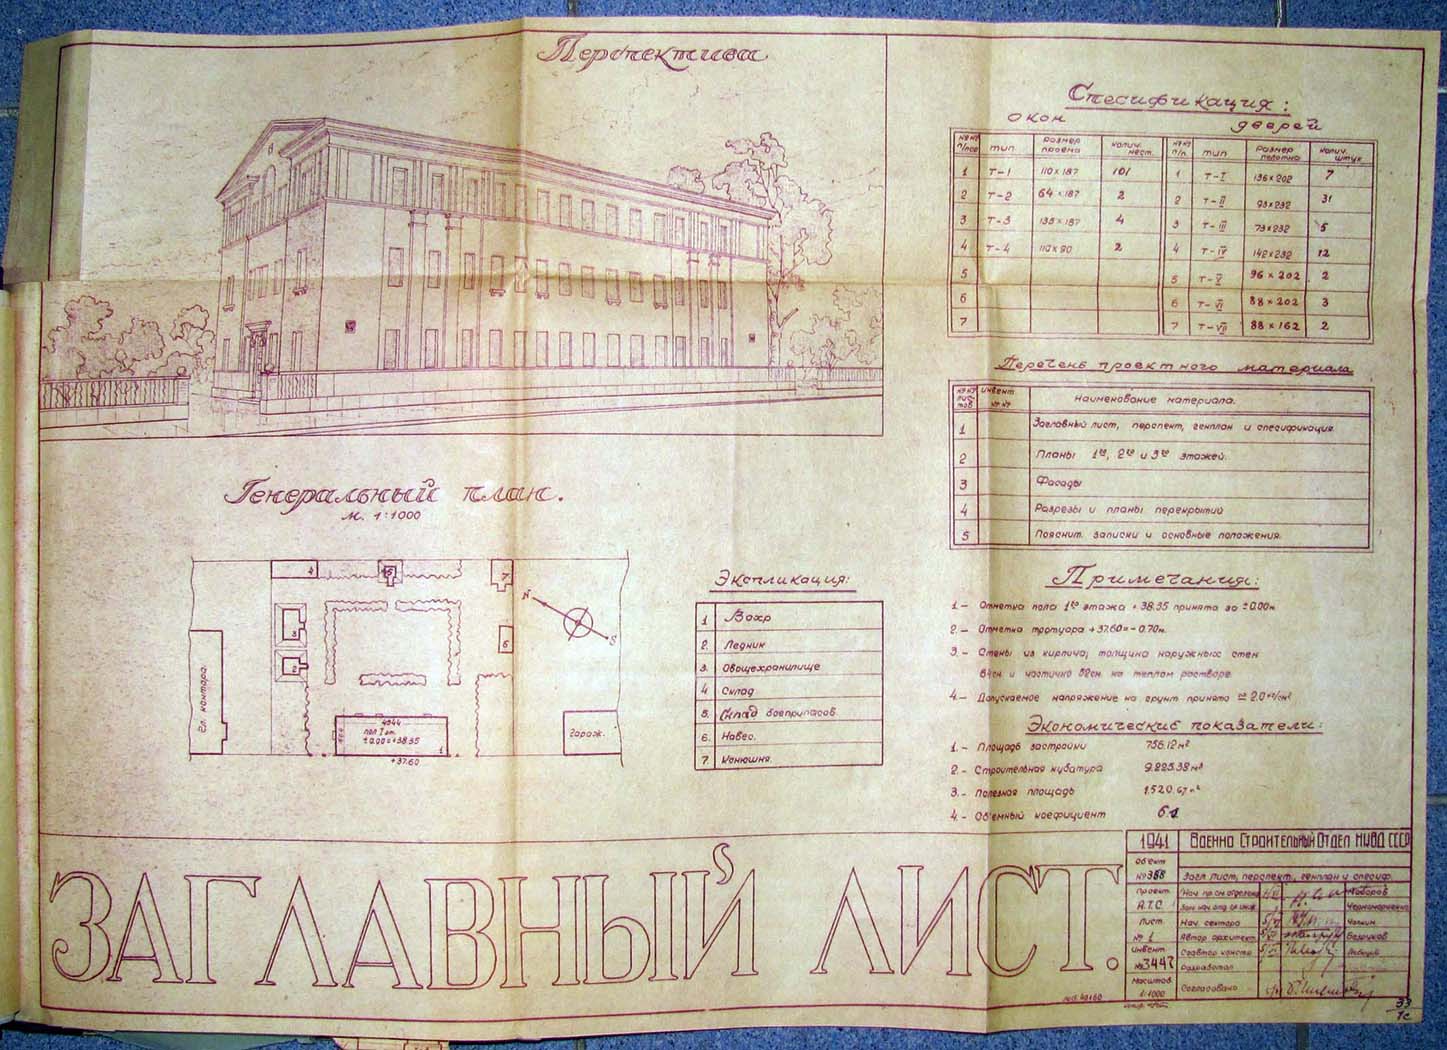 Перспектива
Спесификация:
окон
дверей
№№ п/пор тип размер проёма колич. мест.
1 Т-1 110×187 101
2 Т-2 64×187 2
3 Т-3 135×187 4
4 Т-4 110×90 2
5
6
7
№№ п/п. тип размер полотна колич. штук
1 Т-I 136×202 7
2 Т-II 93×232 31
3 Т-III 73×232 5
4 Т-IV 142×232 12
5 Т-V 96×202 2
6 Т-VI 88×202 3
7 Т-VII 88×162 2
Перечень проектного материала
№№ лис-тов инвент. №№ Наименование материала.
1 Заглавный лист, перспект, генплан и спесификация
2 Планы 1го, 2го и 3го этажей.
3 Фасады
4 Разрезы и планы перекрытий
5 Пояснит. записки и основные положения.
Генеральный план.
М. 1:1000
4
7
3
2
6
N
S
Ел. контора.
4944
пол I эт.
±0.00=+38.35
1
+37.60
Гараж.
Экспликация:
1 Вохр
2. Ледник
3. Овощехранилище
4 Склад
5. Склад боеприпасов.
6. Навес.
7. Конюшня.
Примечания:
1.- Отметка пола 1го этажа +38.35 принята за ±0.00м
2.- Отметка тротуара +37.60=-0.70м.
3.- Стены из кирпича; толщина наружных стен
и частично 52см на теплом растворе.
4.- Допускаемое напряжение на грунт принято = 2.0 кг/см²
Экономические показатели:
1.- Площадь застройки 756.12 м²
2.- Строительная кубатура 9.225.38 м³
3.- Полезная площадь 1.520.67 м²
4.- Об'емный коефициент 6.1
ЗАГЛАВНЫЙ ЛИСТ.
1941 Военно Строительный Отдел НКВД СССР
Об'ект
№ 388 Загл лист, перспект., генплан и специф.
Проект.
А.Т.С.
Лист. Нач. сектора
№ 1 Автор архитект. Безруков
Инвент. Соавтор констр
№ 3447 Разработал
Масштаб
1:1000 Согласовано
33
1с